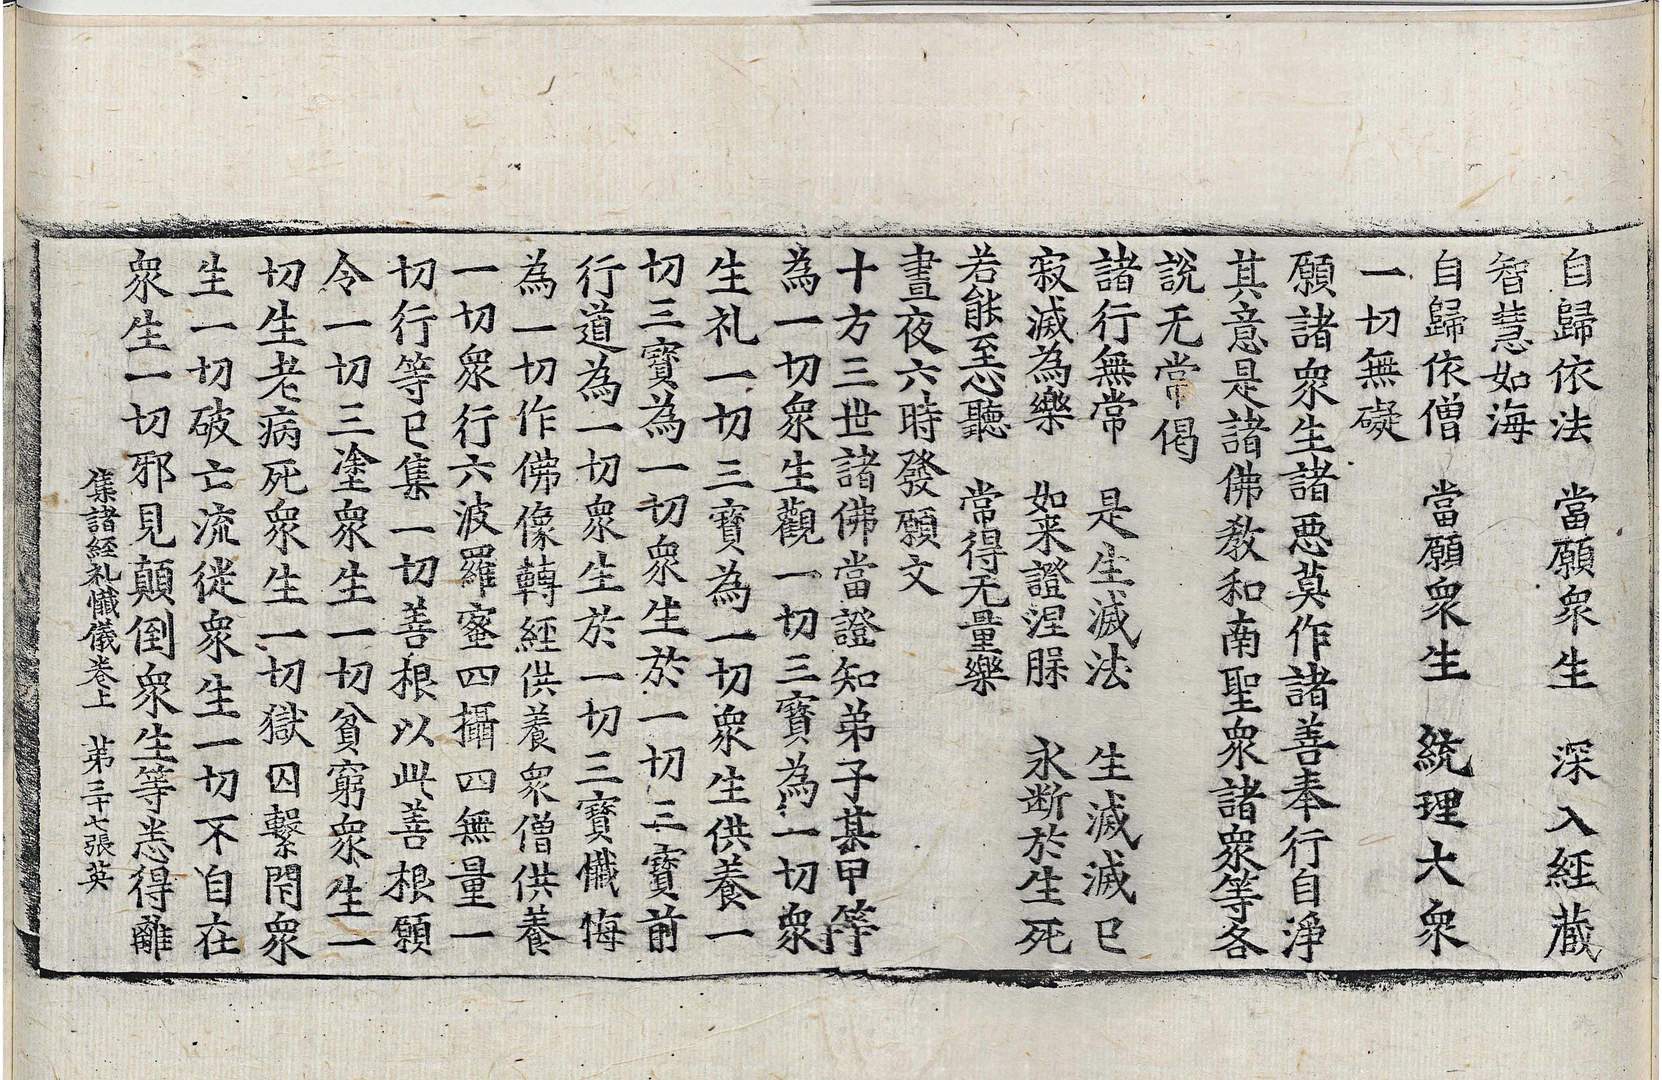 自歸依法　當願衆生　深入經藏
智慧如海
自歸依僧　當願衆生　統理大衆
一切無礙
願諸衆生諸惡莫作諸善奉行自淨
其意是諸佛教和南聖衆諸衆等各
說无常偈
諸行無常　是生滅法　生滅滅已
寂滅為樂　如来證涅槃　永断於生死
若能至心聽　常得无量樂
晝夜六時發願文
十方三世諸佛當證知弟子某甲等
為一切衆生觀一切三寳為一切衆
生礼一切三寳為一切衆生供養一
切三寳為一切衆生於一切三寳前
行道為一切衆生於一切三寳懺悔
為一切作佛像轉經供養衆僧供養
一切衆行六波羅蜜四攝四無量一
切行等已集一切善根以此善根願
令一切三塗衆生一切貧窮衆生一
切生老病死衆生一切獄囚繫閉衆
生一切破亡流徙衆生一切不自在
衆生一切邪見顛倒衆生等悉得離
集諸經礼懺儀卷上　第三十七張英